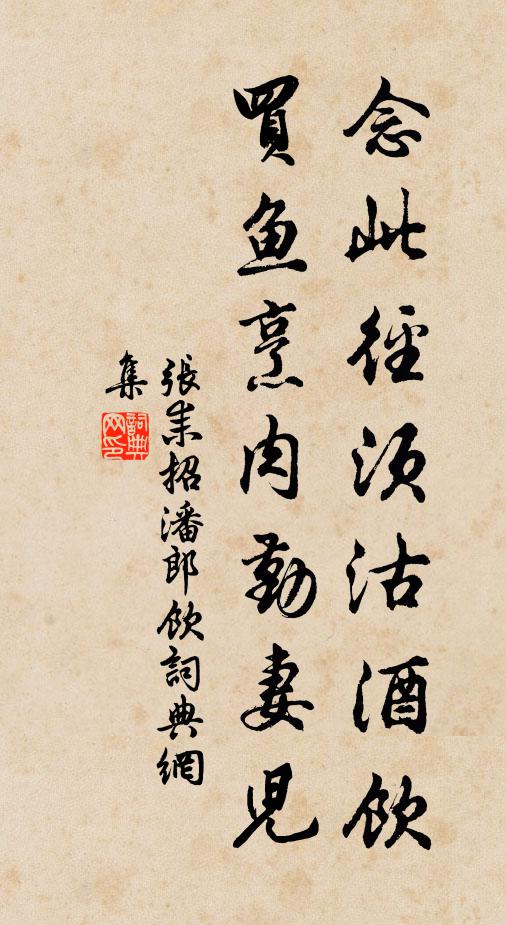 念此徑須沽酒飲
買魚烹肉勤妻兒
張耒招潘郎飲詞典網
集
詞典
网印